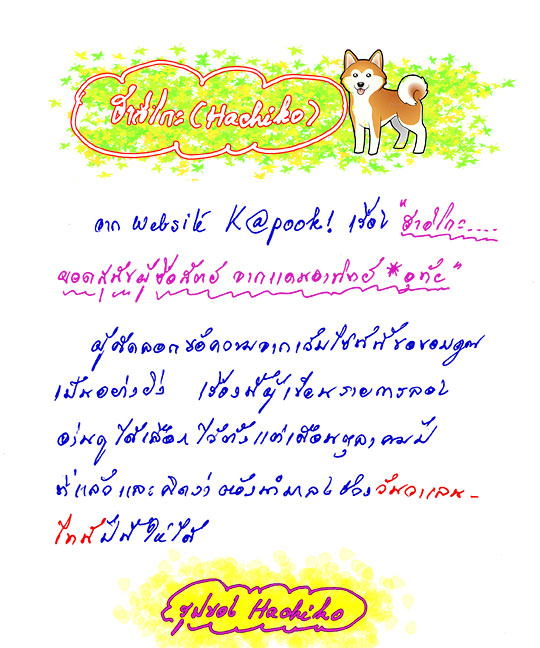 ฮาชิโกะ (Hachiko)
จาก Website K@pook! เรื่อง "ฮาชิโกะ....
ยอดสุนัขผู้ซื่อสัตย์ จากแดนอาทิตย์ *อุทัย"
ผู้คัดลอกข้อความจากเว็บไซท์นี้ขอขอบคุณ
เป็นอย่างยิ่ง เรื่องนี้ผู้เขียนรายการลอง
อ่านดู ได้เลือกไว้ตั้งแต่เดือนตุลาคมปี
ที่แล้วและคิดว่าต้องนำมาลงช่วงวันวาเลน-
ไทน์ปีนี้ให้ได้
รูปของ Hachiko